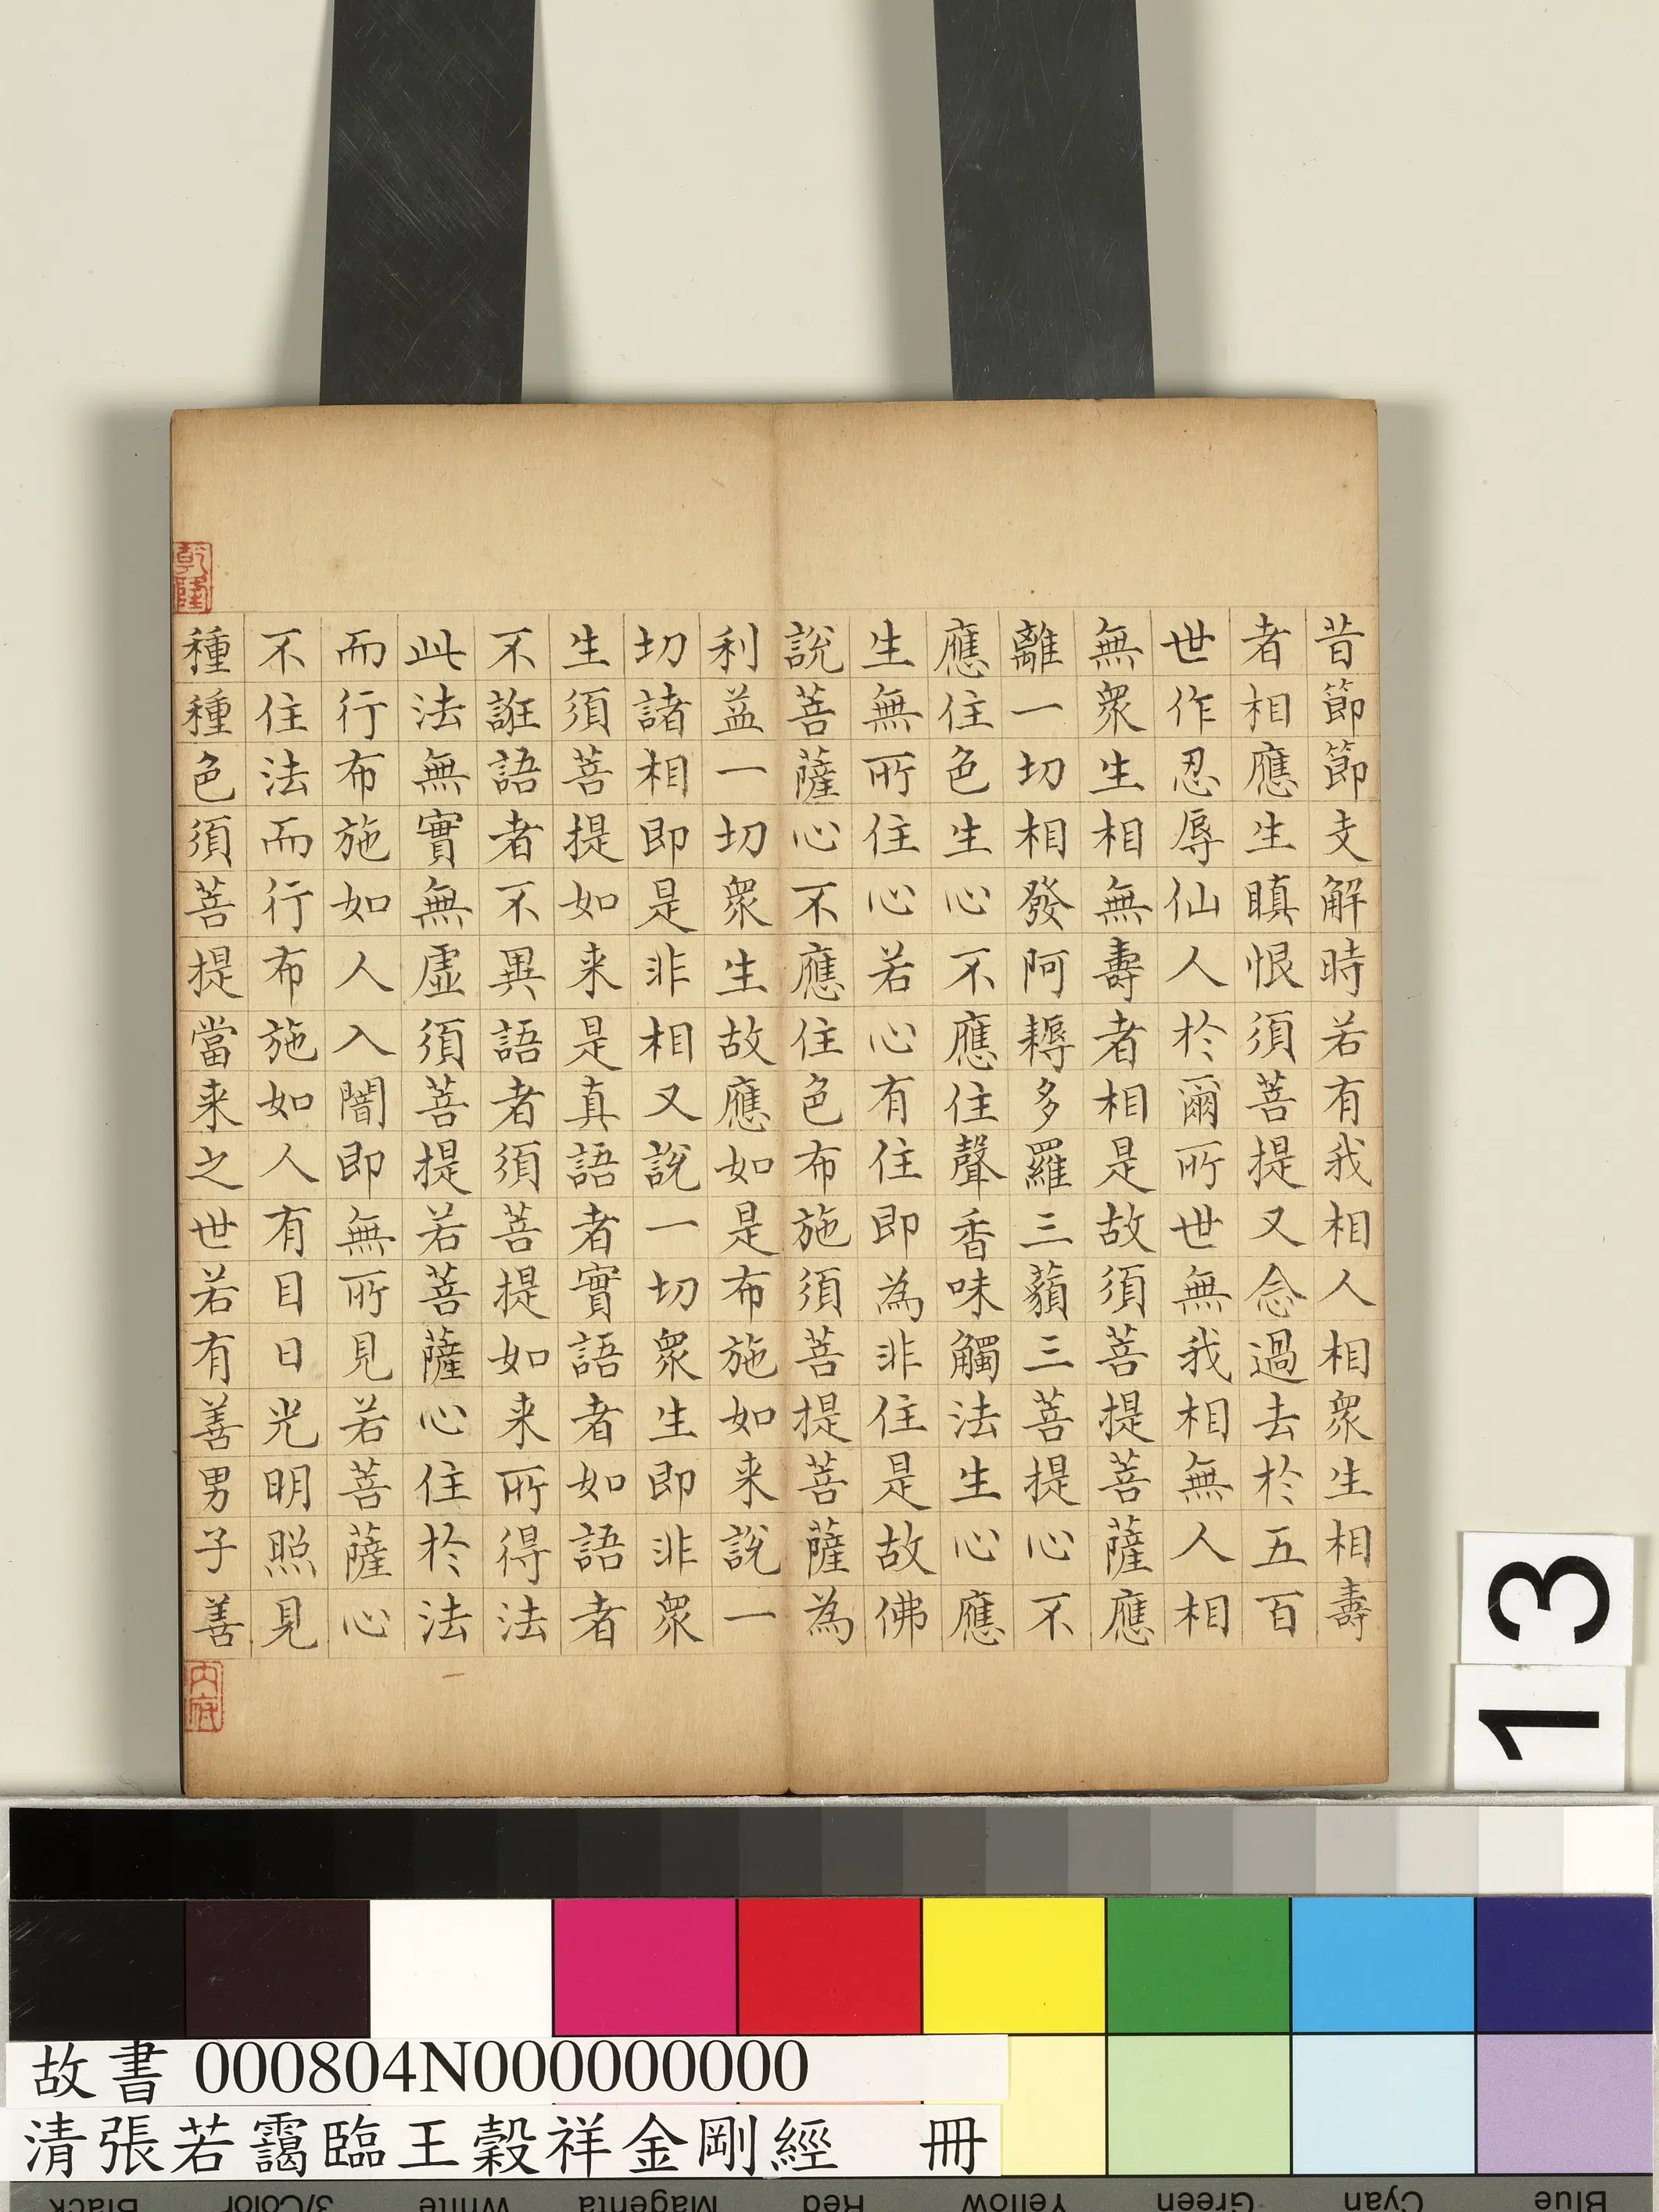 昔節節支解時若有我相人相衆生相壽
者相應生瞋恨須菩提又念過去於五百
世作忍辱仙人於爾所世無我相無人相
無衆生相無壽者相是故須菩提菩薩應
離一切相發阿耨多羅三藐三菩提心不
應住色生心不應住聲香味觸法生心應
生無所住心若心有住即為非住是故佛
說菩薩心不應住色布施須菩提菩薩為
利益一切衆生故應如是布施如来說一
切諸相即是非相又說一切衆生即非衆
生須菩提如来是真語者實語者如語者
不誑語者不異語者須菩提如来所得法
此法無實無虛須菩提若菩薩心住於法
而行布施如人入闇即無所見若菩薩心
不住法而行布施如人有目日光明照見
種種色須菩提當来之世若有善男子善
乾隆
內府
13
故書 000804N000000000
清張若靄臨王穀祥金剛經 冊
Black 3/Color White Magenta Red Yellow Green Cyan Blue